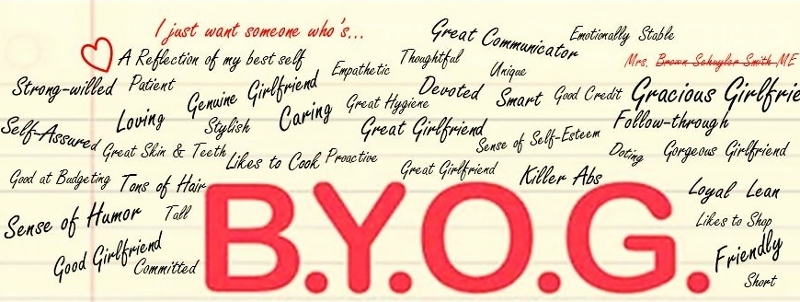 I just want someone who's...
Great Communicator
Emotionally Stable
A Reflection of my best self
Thoughtful
Mrs. Brown Schuyler Smith ME
Empathetic
Unique
Strong-willed
Patient
Genuine Girlfriend
Great Hygiene
Devoted
Smart
Good Credit
Gracious Girlfrie
Loving
Stylish
Caring
Great Girlfriend
Sense of Self-Esteem
Follow-through
Self-Assured
Great Skin & Teeth
Likes to Cook
Proactive
Great Girlfriend
Doting
Gorgeous Girlfriend
Good at Budgeting
Tons of Hair
Killer Abs
Loyal
Lean
Sense of Humor
Tall
Likes to Shop
Good Girlfriend
Committed
Friendly
Short
B.Y.O.G.